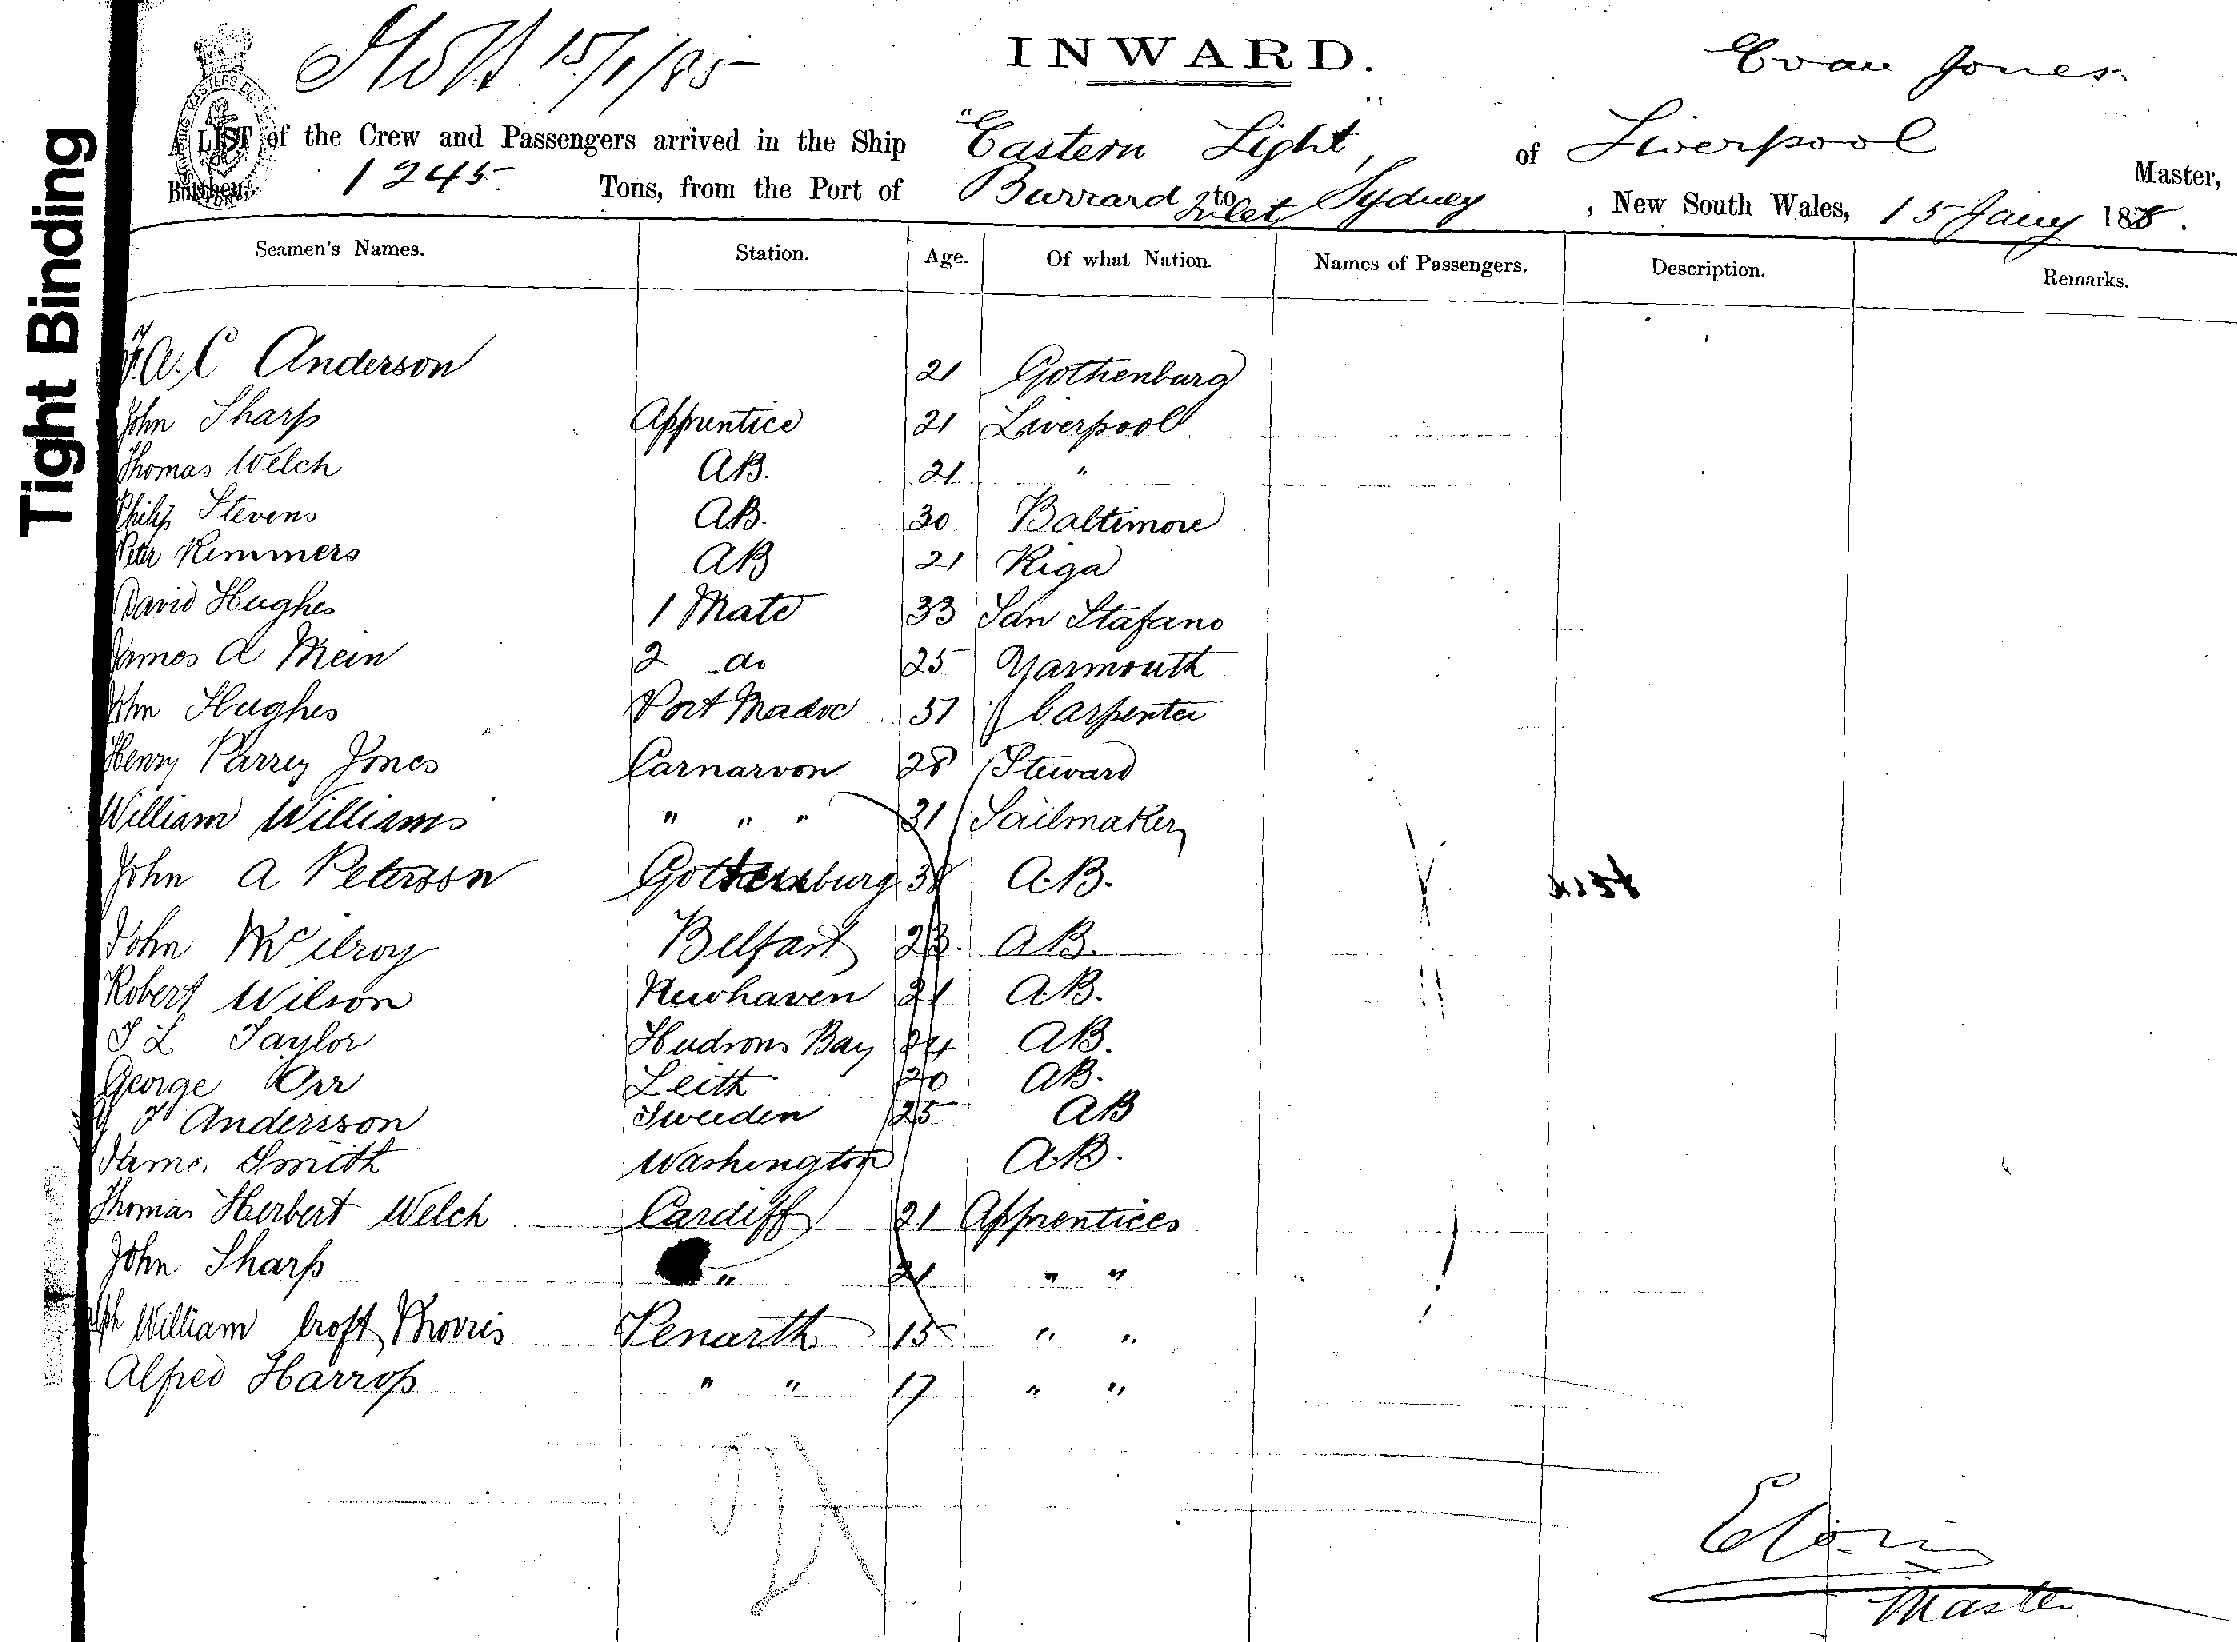 15/1/85
INWARD.
Evan Jones
A LIST of the Crew and Passengers arrived in the Ship "Eastern Light", of Liverpool
Master,
Burthen, 1245 Tons, from the Port of Burrard Inlet to Sydney, New South Wales, 15 Jany 188 .
Seamen's Names. Station. Age. Of what Nation. Names of Passengers. Description. Remarks.
Tight Binding
A. C Anderson 21 Gothenburg
John Sharp Apprentice 21 Liverpool
Thomas Welch AB. 21 "
Philip Stevens AB. 30 Baltimore
Peter Remmers AB 21 Riga
David Hughes 1 Mate 33 San Stafano
James A Mein 2 do 25 Yarmouth
John Hughes Port Madoc 51 Carpenter
Henry Parrey Jones Carnarvon 28 Steward
William Williams " " " 31 Sailmaker
John A Peterson Gottenburg 38 A.B.
John McIlroy Belfast 23. AB.
Robert Wilson Newhaven 21 AB.
J L Taylor Hudsons Bay 24 AB.
George Orr Leith 20 AB.
J Andersson Sweeden 25 AB
James Smith Washington AB.
Thomas Herbert Welch Cardiff 21 Apprentices
John Sharp " 21 " "
William Croft Morris Penarth 15 " "
Alfred Harrop " " 17 " "
Master